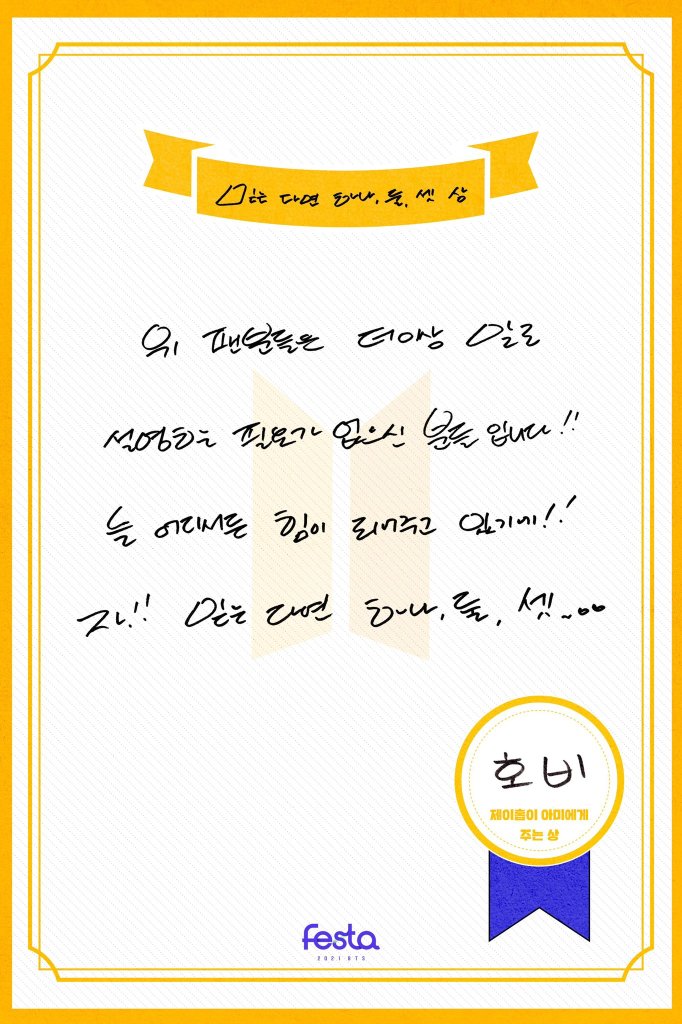 믿는 다면 하나, 둘, 셋 상
위 팬분들은 더이상 말로
설명하는 필요가 없으신 분들 입니다!!
늘 어디서든 힘이 되어주고 있기에!!
자!! 믿는 다면 하나, 둘, 셋~..
호비
제이홉이 아미에게
주는 상
festa
2021 BTS